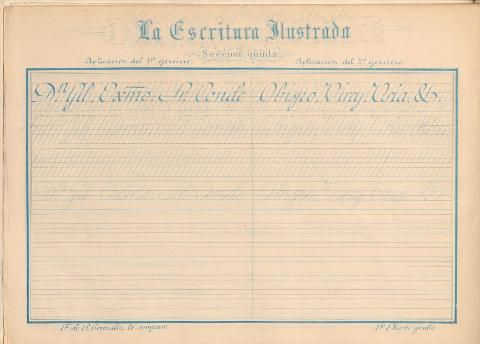 La Escritura Ilustrada
Sección quinta.
Aplicacion del 1er ejercicio. Aplicacion del 2º ejercicio.
Dn. Gil, Exmo. Sr. Conde Obispo, Virey, Usía, &.
Dn. Gil Exmo Sr. Conde Obispo Virey Usía &.
F. de P. Gonzalez lo compuso P. Marti grabó